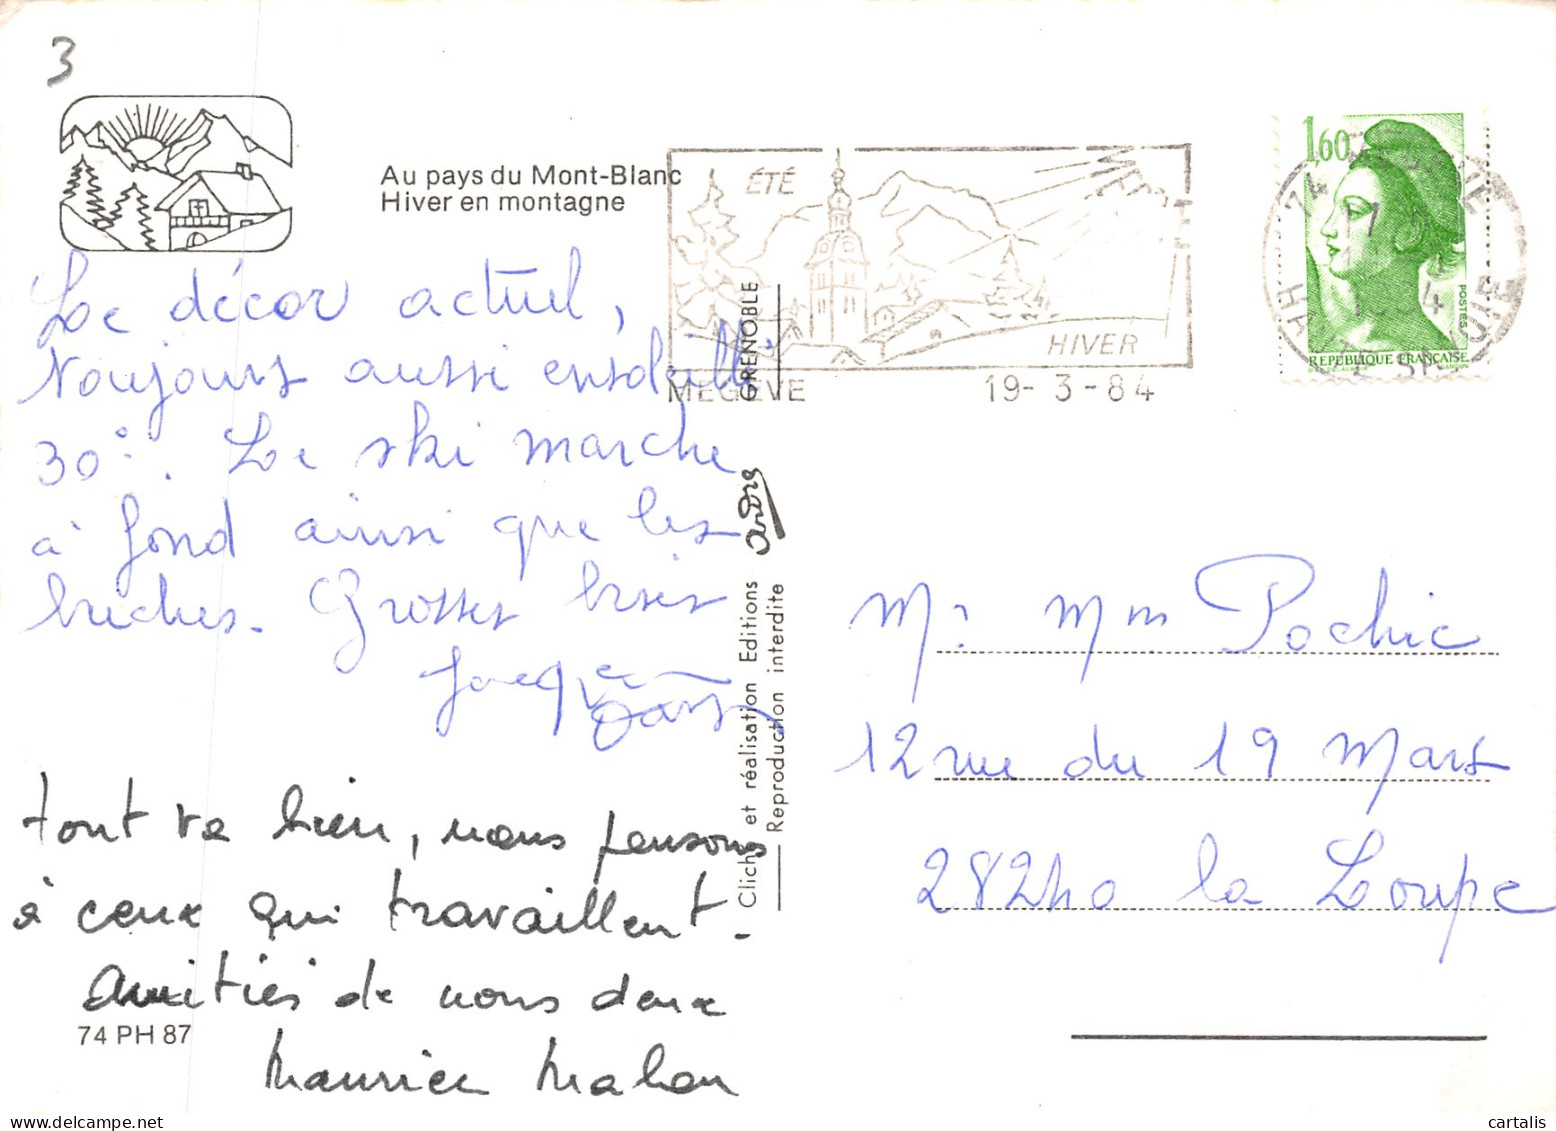 3
Au pays du Mont-Blanc
Hiver en montagne
Le décor actuel,
toujours aussi ensoleillé
30°. Le ski marche
à fond ainsi que les
briches. Grosses bises
Jacques
tout va bien, nous pensons
à ceux qui travaillent.
Amitiés de nous deux
Maurice
74 PH 87
GRENOBLE
André
Cliché et réalisation Editions
Reproduction interdite
ÉTÉ
HIVER
MEGEVE
19-3-84
1,60
POSTES
REPUBLIQUE FRANÇAISE
74 MEGEVE
HAUTE SAVOIE
Mr. Mme Pochic
12 rue du 19 Mars
28240 la Loupe
© www.delcampe.net
cartalis